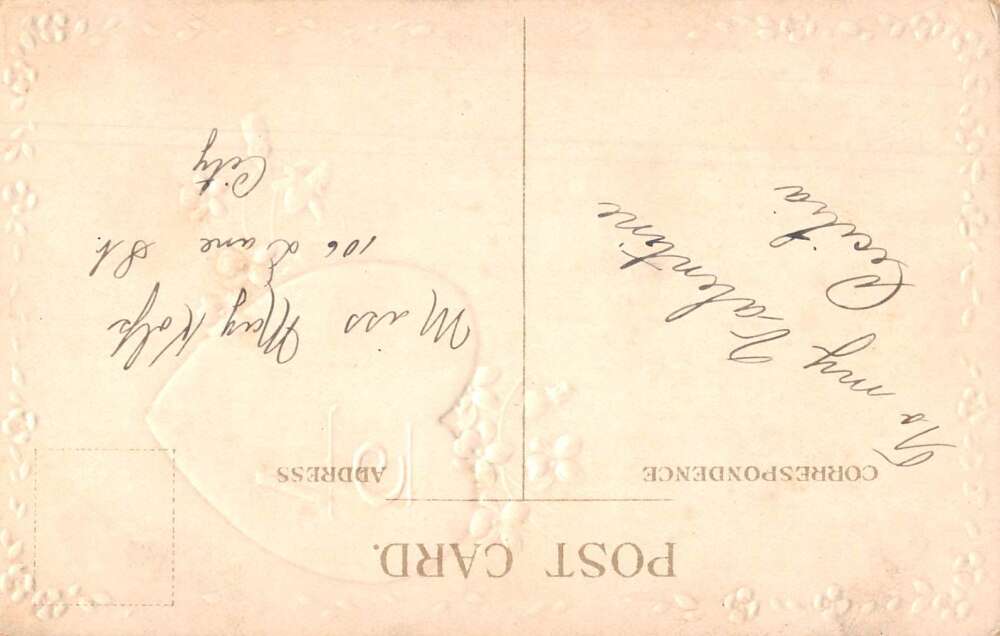 POST CARD.
CORRESPONDENCE
ADDRESS
To my
Valentine
Cecilia
Miss May Kolp
106 Lane St.
City